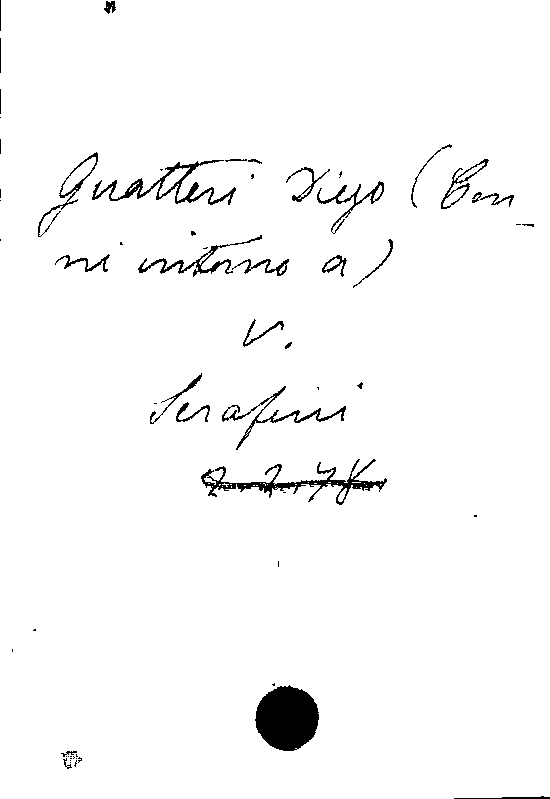 Guatteri Diego (Cen-
ni intorno a)
V.
Serafini
2.2.78